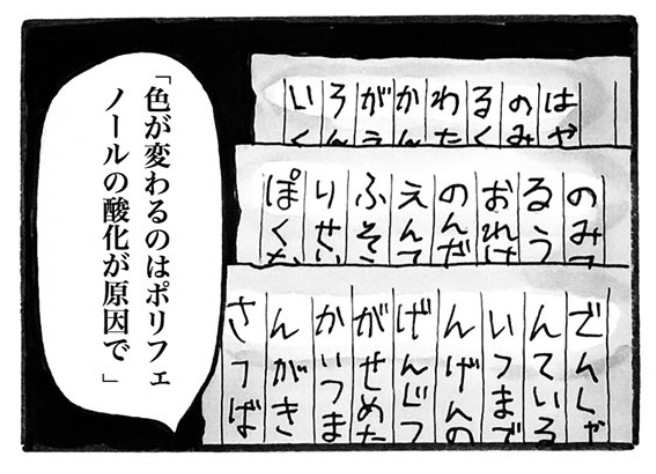 はや
のみ
るく
わた
かん
がう
ろん
いく
のみ
るう
おれ
のんだ
えんて
ふそ
りせい
ぽく
でんしゃ
んている
いつまで
んげんの
げんじつ
がせめた
かいつま
んがき
さつば
「色が変わるのはポリフェ
ノールの酸化が原因で」